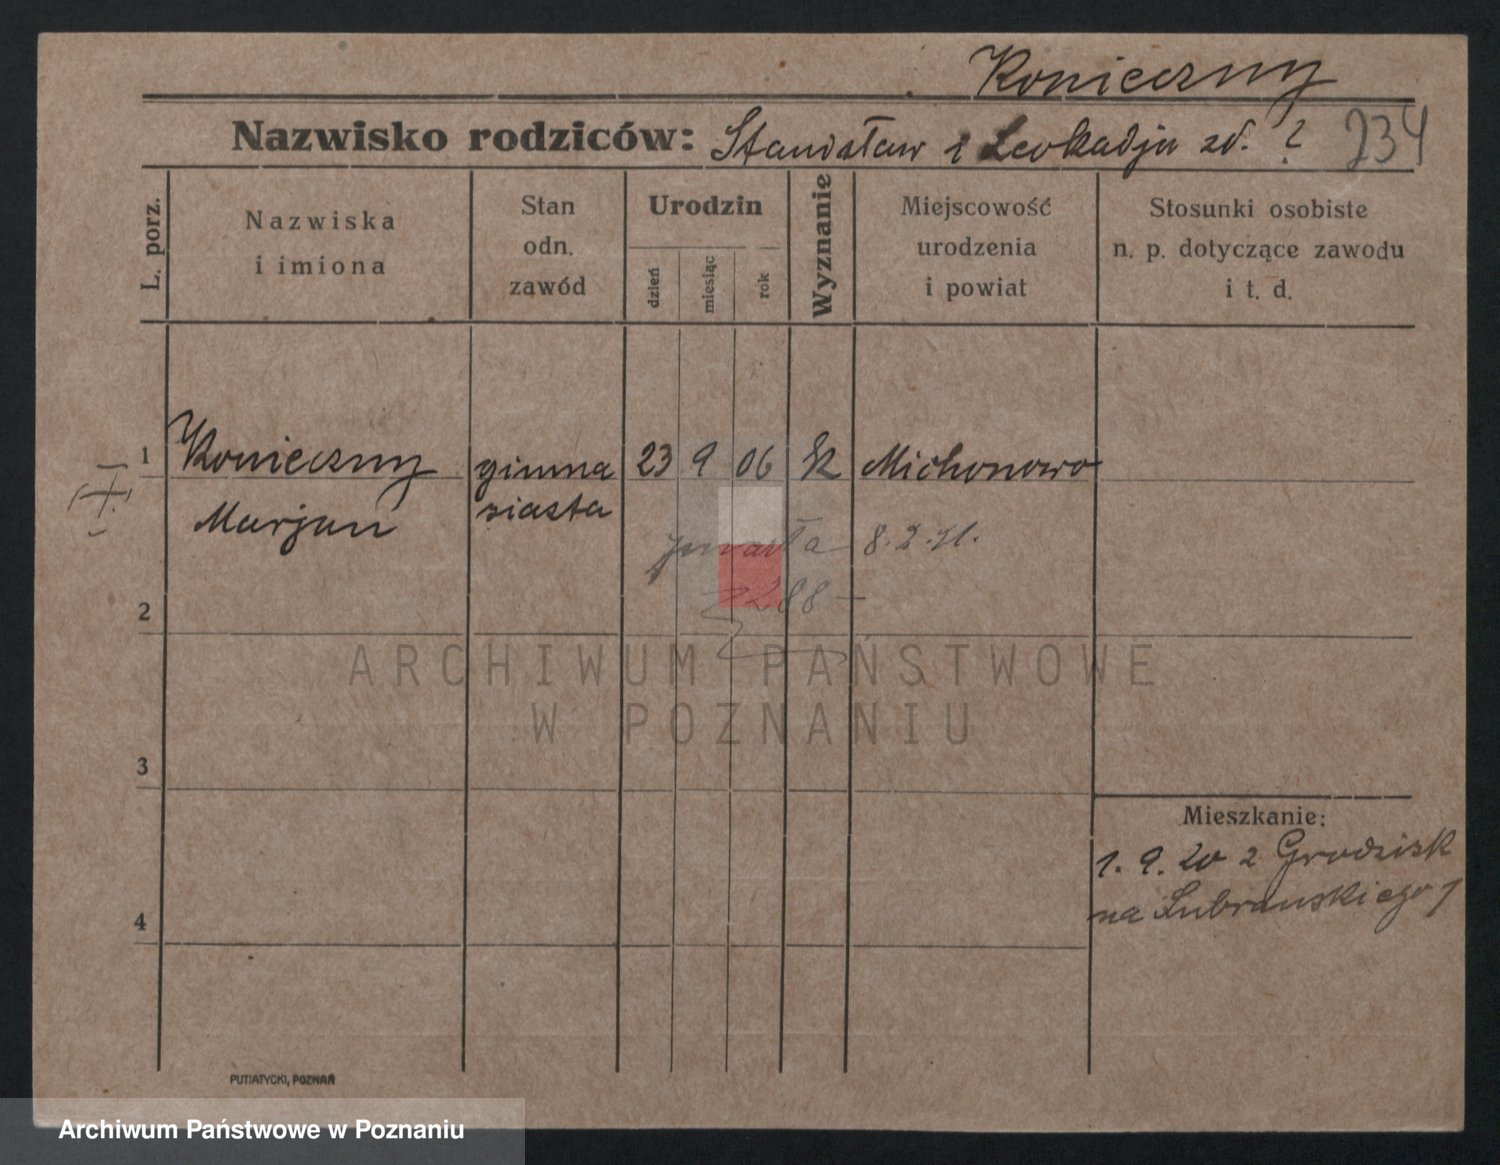 Konieczny
Nazwisko rodziców: Stanisław i Leokadja zd. ? 234
L. porz.
Nazwiska
i imiona
Stan
odn.
zawód
Urodzin
dzień
miesiąc
rok
Wyznanie
Miejscowość
urodzenia
i powiat
Stosunki osobiste
n. p. dotyczące zawodu
i t. d.
1 Konieczny gimna 23 9 06 k Michonowo
Marjan siasta
8.2.21.
2
ARCHIWUM PAŃSTWOWE
W POZNANIU
3
Mieszkanie:
1. 9. 20 z Grodzisk
na Lubrańskiego 1
4
PUTIATYCKI, POZNAŃ
Archiwum Państwowe w Poznaniu